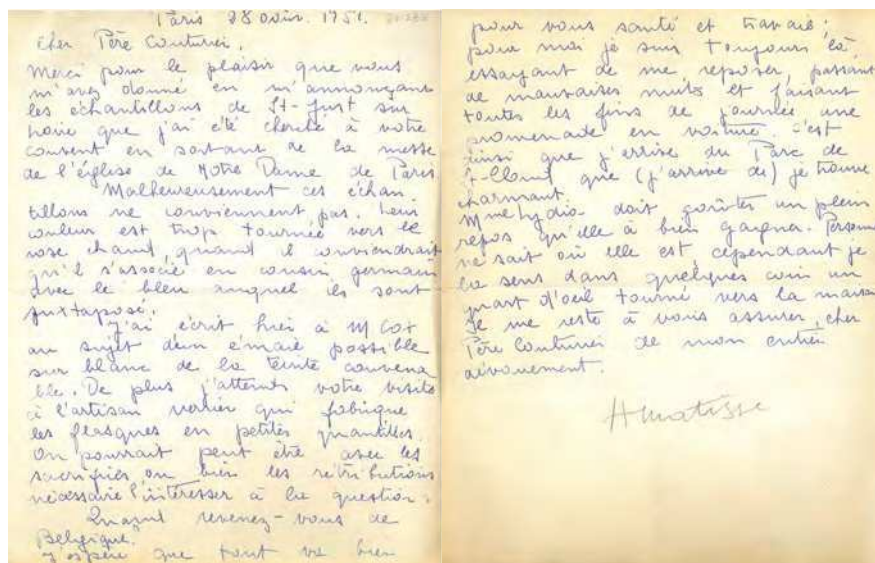 Paris 28 août. 1951.
Cher Père Couturier.
Merci pour le plaisir que vous
m'avez donné en m'annonçant
les échantillons de St-Just sur
que j'ai été cherché à votre
couvent en sortant de la messe
de l'église de Notre Dame de Paris
Malheureusement ces échan
tillons ne conviennent pas. Leur
couleur est trop tournée vers le
rose chaud, quand il conviendrait
qu'il s'associe en cousin germain
avec le bleu auquel ils sont
juxtaposé.
J'ai écrit hier à M Cox
au sujet d'un émail possible
sur blanc de la teinte convena
ble. De plus j'attends votre visite
à l'artisan verrier qui fabrique
les plasques en petites quantités.
On pourrait peut être avec les
sacrifices ou bien les rétributions
nécessaire l'intéresser à la question.
Quand revenez-vous de
Belgique.
J'espère que tout va bien
pour vous santé et travail;
pour moi je suis toujours là,
essayant de me reposer, passant
de mauvaises nuits et faisant
toutes les fins de journée une
promenade en voiture. C'est
ainsi que j'arrive du Parc de
St-Cloud que (j'arrive de) je trouve
charmant.
Mme Lydia doit goûter un plein
repos qu'elle à bien gagner. Personne
ne sait où elle est, cependant je
la sens dans quelques coin un
quart d'oeil tourné vers la maison
Je me reste à vous assurer, cher
Père Couturier de mon entier
dévouement.
HMatisse